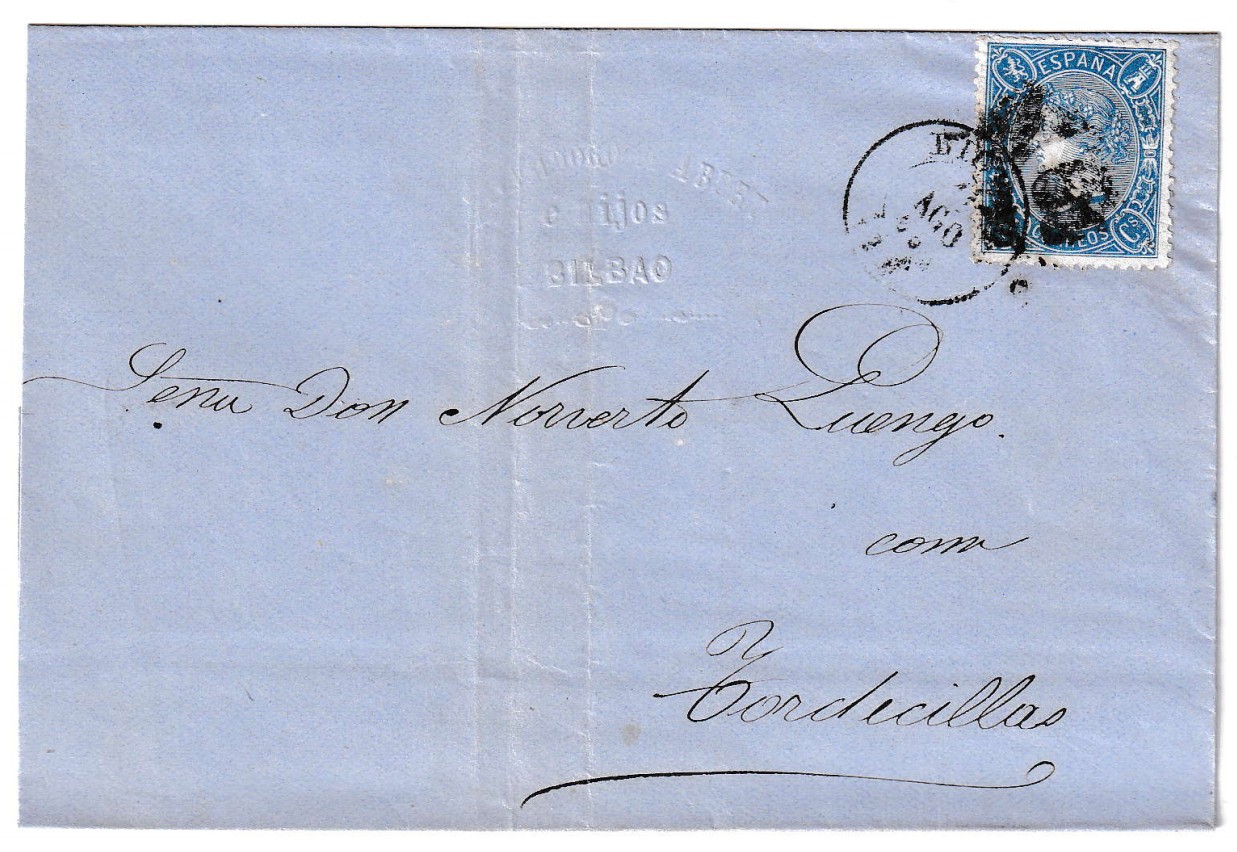 ESPAÑA
Cs
BIL
AGO
e Hijos
BILBAO
Señor Don Norverto Luengo.
com
Tordecillas